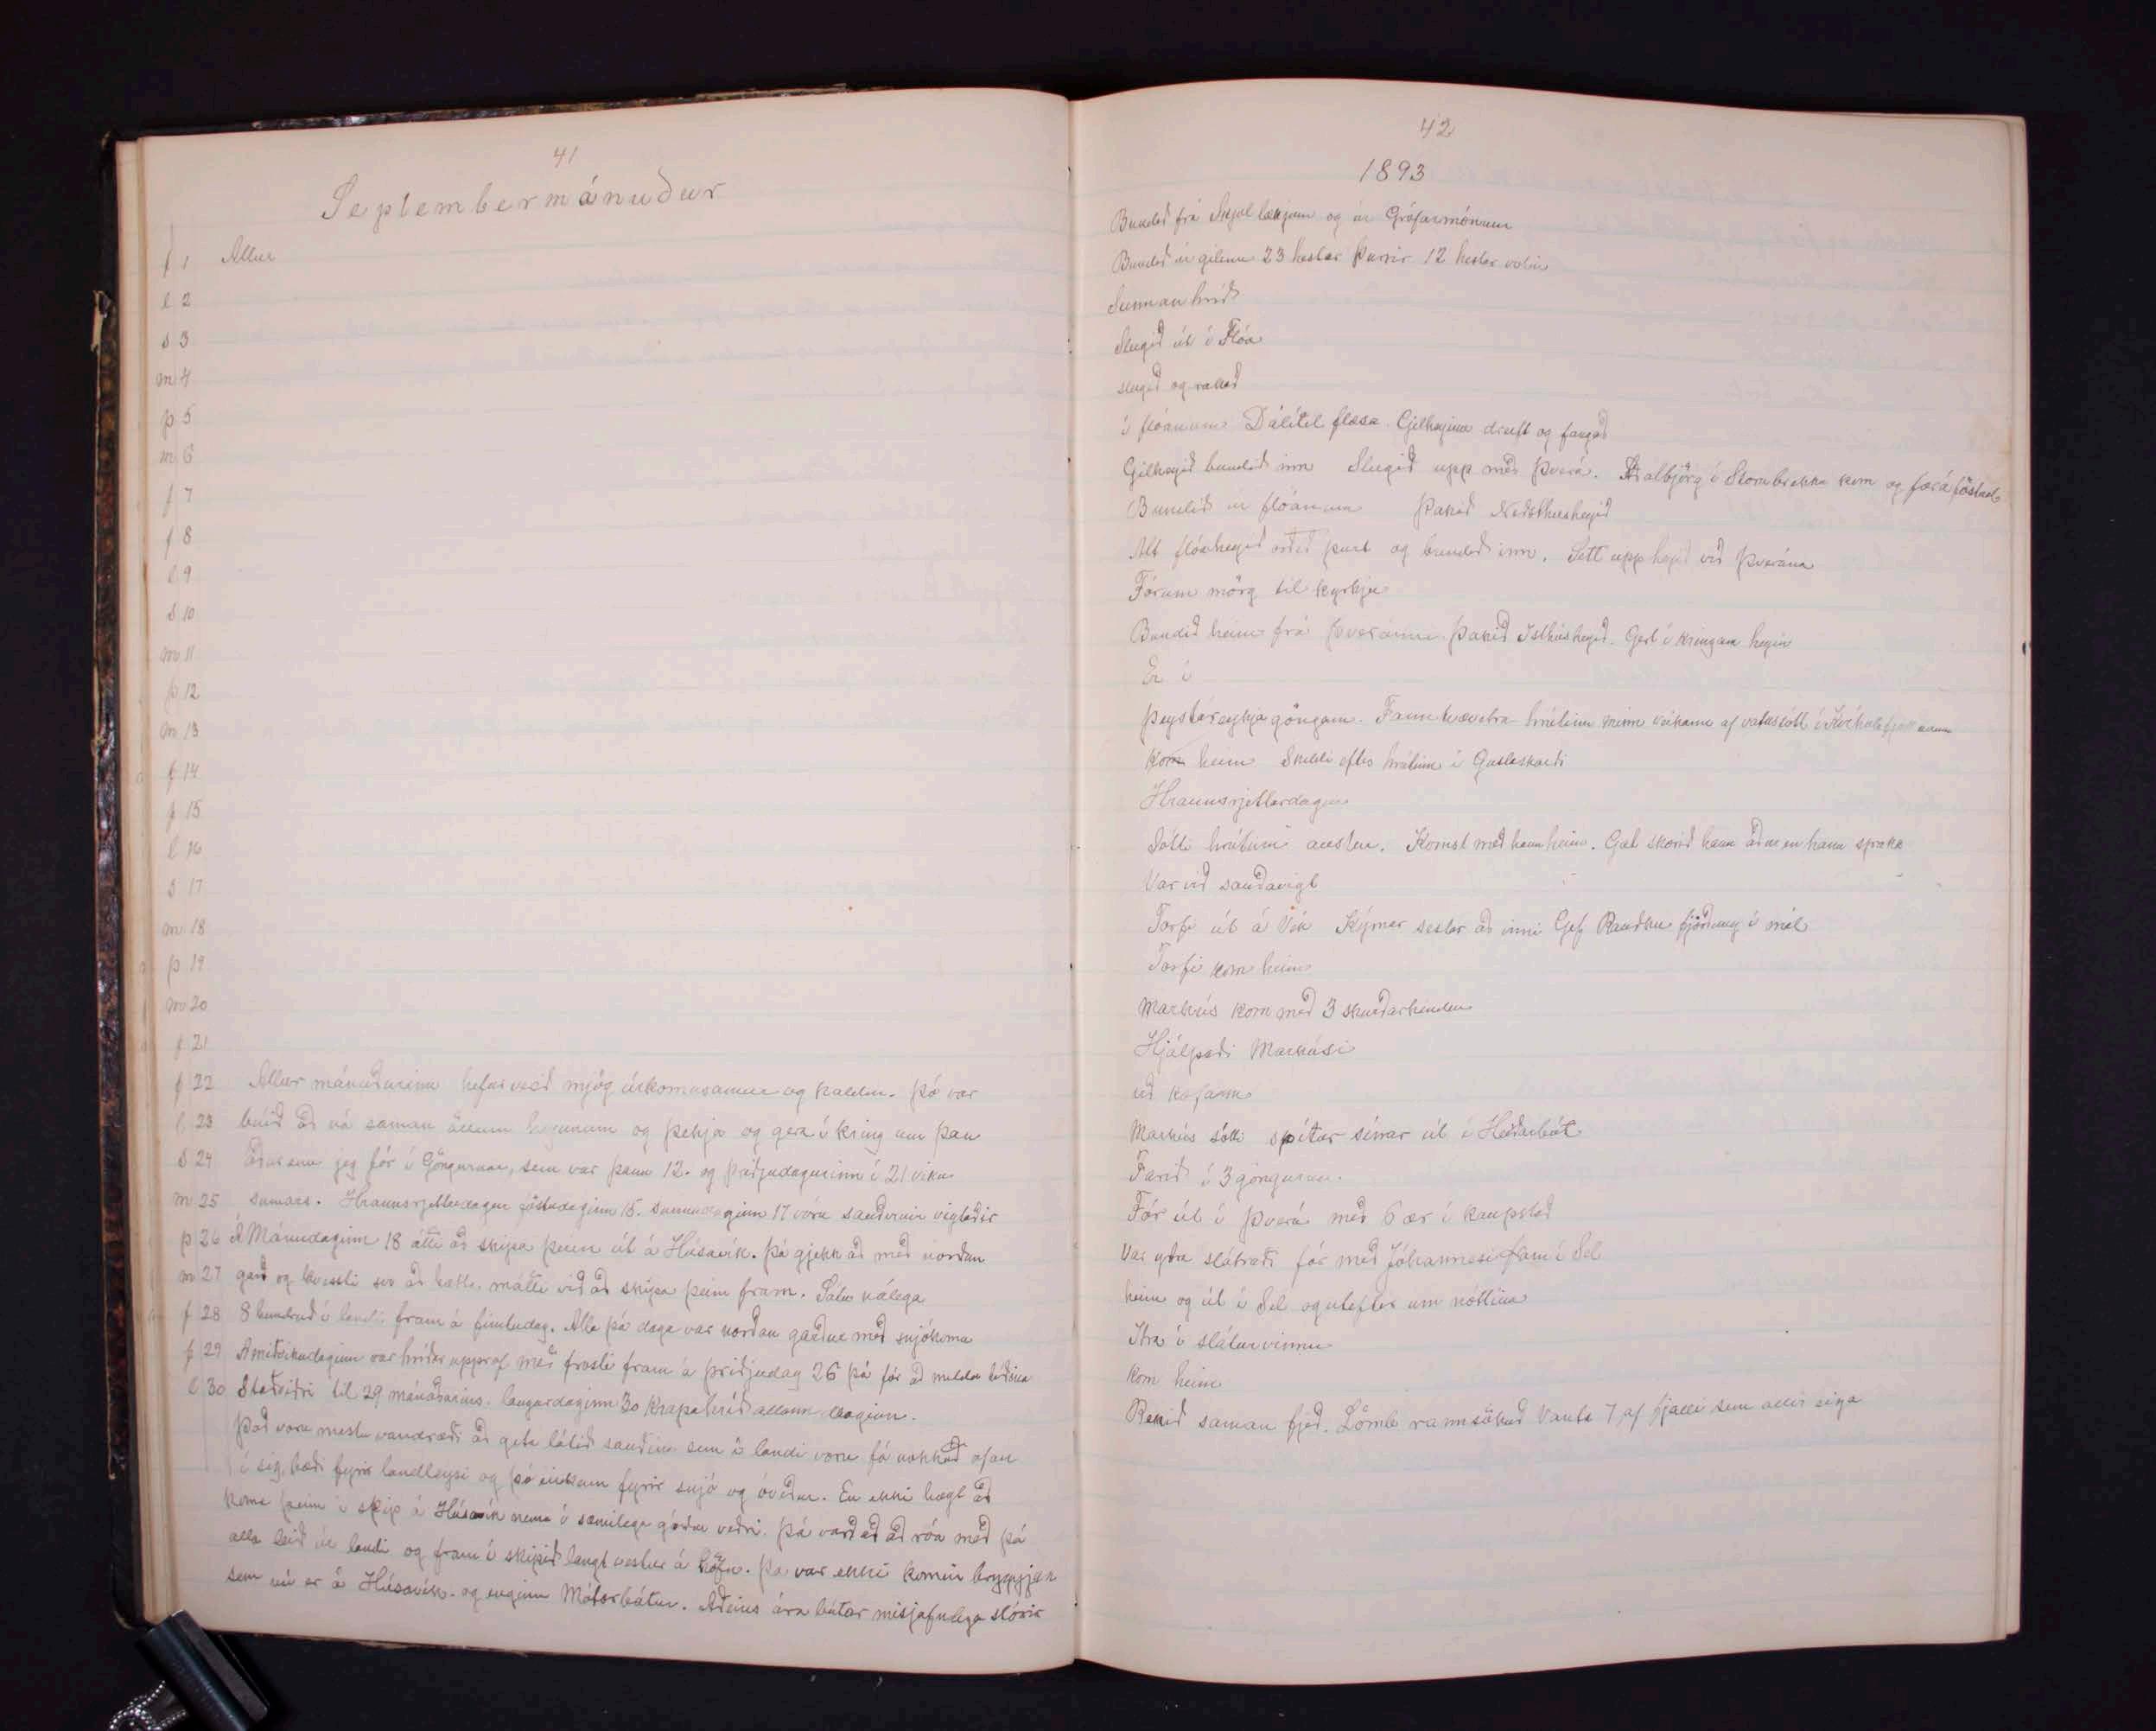 41
Septembermánuður
f 1 Allur
l 2
s 3
m 4
þ 5
m 6
f 7
f 8
l 9
s 10
m 11
þ 12
m 13
f 14
f 15
l 16
s 17
m 18
þ 19
m 20
f 21
f 22 Allur mánuðurinn hefur verið mjög úrkomusamur og kaldur. Þó var
l 23 búið að ná saman öllum heyjunum og þekja og gera í kring um þau
s 24 áður enn jeg fór í Göngurnar, sem var þann 12. og þriðjudagurinn í 21 viku
m 25 sumars. Hraunsrjettardagur föstudaginn 15. sunnudaginn 17 vóru sauðirnir vigtaðir
þ 26 Á Mánudaginn 18 átti að skipa þeim út á Húsavík. Þá gjekk að með norðan
m 27 garð og hvessti svo að hætta mátti við að skipa þeim fram. Sátu nálega
f 28 8 hundruð í landi fram á fimtudag. Alla þá daga var norðan garður með snjókomu
f 29 Á miðvikudaginn var hríðar uppraf með frosti fram á þriðjudag 26 þá fór að milda tíðina
l 30 Staðviðri til 29 mánaðarins. laugardaginn 30 Krapahríð allann daginn.
Það voru mestu vandræði að geta látið sauðina sem á landi voru fá nokkuð ofan
í sig, bæði fyrir landleysi og þó einkum fyrir snjó og óveður. En ekki hægt að
koma þeim í skip á Húsavík nema í sæmilega góðu veðri. Þá varð að róa með þá
alla leið úr landi og fram í skipið langt vestur á höfn. Þá var ekki komin bryggjan
sem nú er á Húsavík. og enginn Mótorbátur. Aðeins ára bátar misjafnlega stórir
42
1893
Bundið frá Skjollækjum og úr Grófarmónum
Bundið úr gilinu 23 hestar þurrir 12 hestar votir
Sunnan hríð
Slegið út í Flóa
slegið og rakað
í flóanum Dálítil flæsa Gilheyinu dreift og fangað
Gilheyið bundið inn Slegið upp með Þverá. Aðalbjörg í Stórubrekku kom og fór á föstud.
Bundið úr flóanum Þakið Neðsthúsheyið
Alt flóaheyið orðið þurt og bundið inn. Sett upp heyið við Þverána
Fórum mörg til kyrkju
Bundið heim frá Þveránni Þakið Ísthúsheyið. Gert í kringum heyin
Er í
Þeystareykja göngum. Fann tvævetra hrútinn minn veikann af vatnssótt í
Kom heim Skildi eftir hrútinn í
Hraunsrjettardagur
Sótti hrútinn austur. Komst með hann heim. Gat skorið hann áður en hann sprakk
Var við sauðavigt
Torfi út á Vík Kýrnar sestar að inni Gef Rauðku fjórðung í mál
Torfi kom heim
Markús kom með 3 skurðarkindur
Hjálpaði Markúsi
við kofann
Markús sótti spítur sínar út í Heiðarbót
Farið í 3 göngurnar.
Fór út í Þverá með 6 ær í kaupstað
Var ytra slátraði fór með Jóhannesi fram í Sel
heim og út í Sel og úteftir um nóttina
Itra í sláturvinnu
kom heim
Rekið saman fjeð. Lömb rannsökuð Vanta 7 af fjalli sem allir eiga